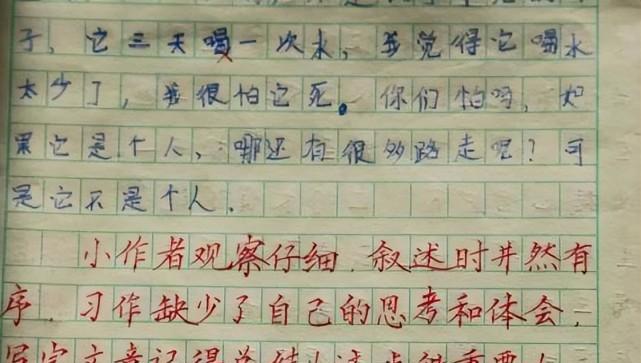 子，它三天喝一次水，我觉得它喝水
太少了，我很怕它死。你们怕吗，如
果它是个人，哪还有很多路走呢？可
是它不是个人.
小作者观察仔细，叙述时井然有
序. 习作缺少了自己的思考和体会，
写完文章记得总结